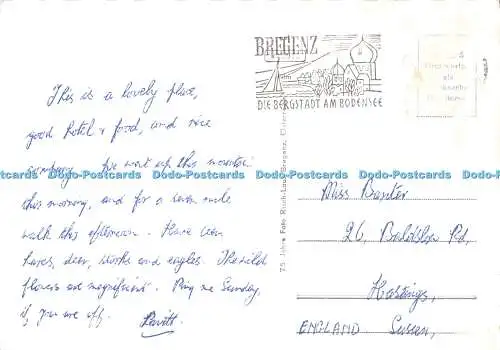 BREGENZ
DIE BERGSTADT AM BODENSEE
This is a lovely place,
good hotel & food, and nice
We went up this mountain
this morning, and for a seven mile
walk this afternoon. Have seen
hares, deer, storks and eagles. The wild
flowers are magnificent. Ring me Sunday,
if you are off.
75 Jahre Foto Risch-Lau, Bregenz,
Miss Baxter
26, Rd,
Hastings,
ENGLAND Sussex,
Dodo-Postcards Dodo-Postcards Dodo-Postcards Dodo-Postcards Dodo-Postcards Dodo-Postcards